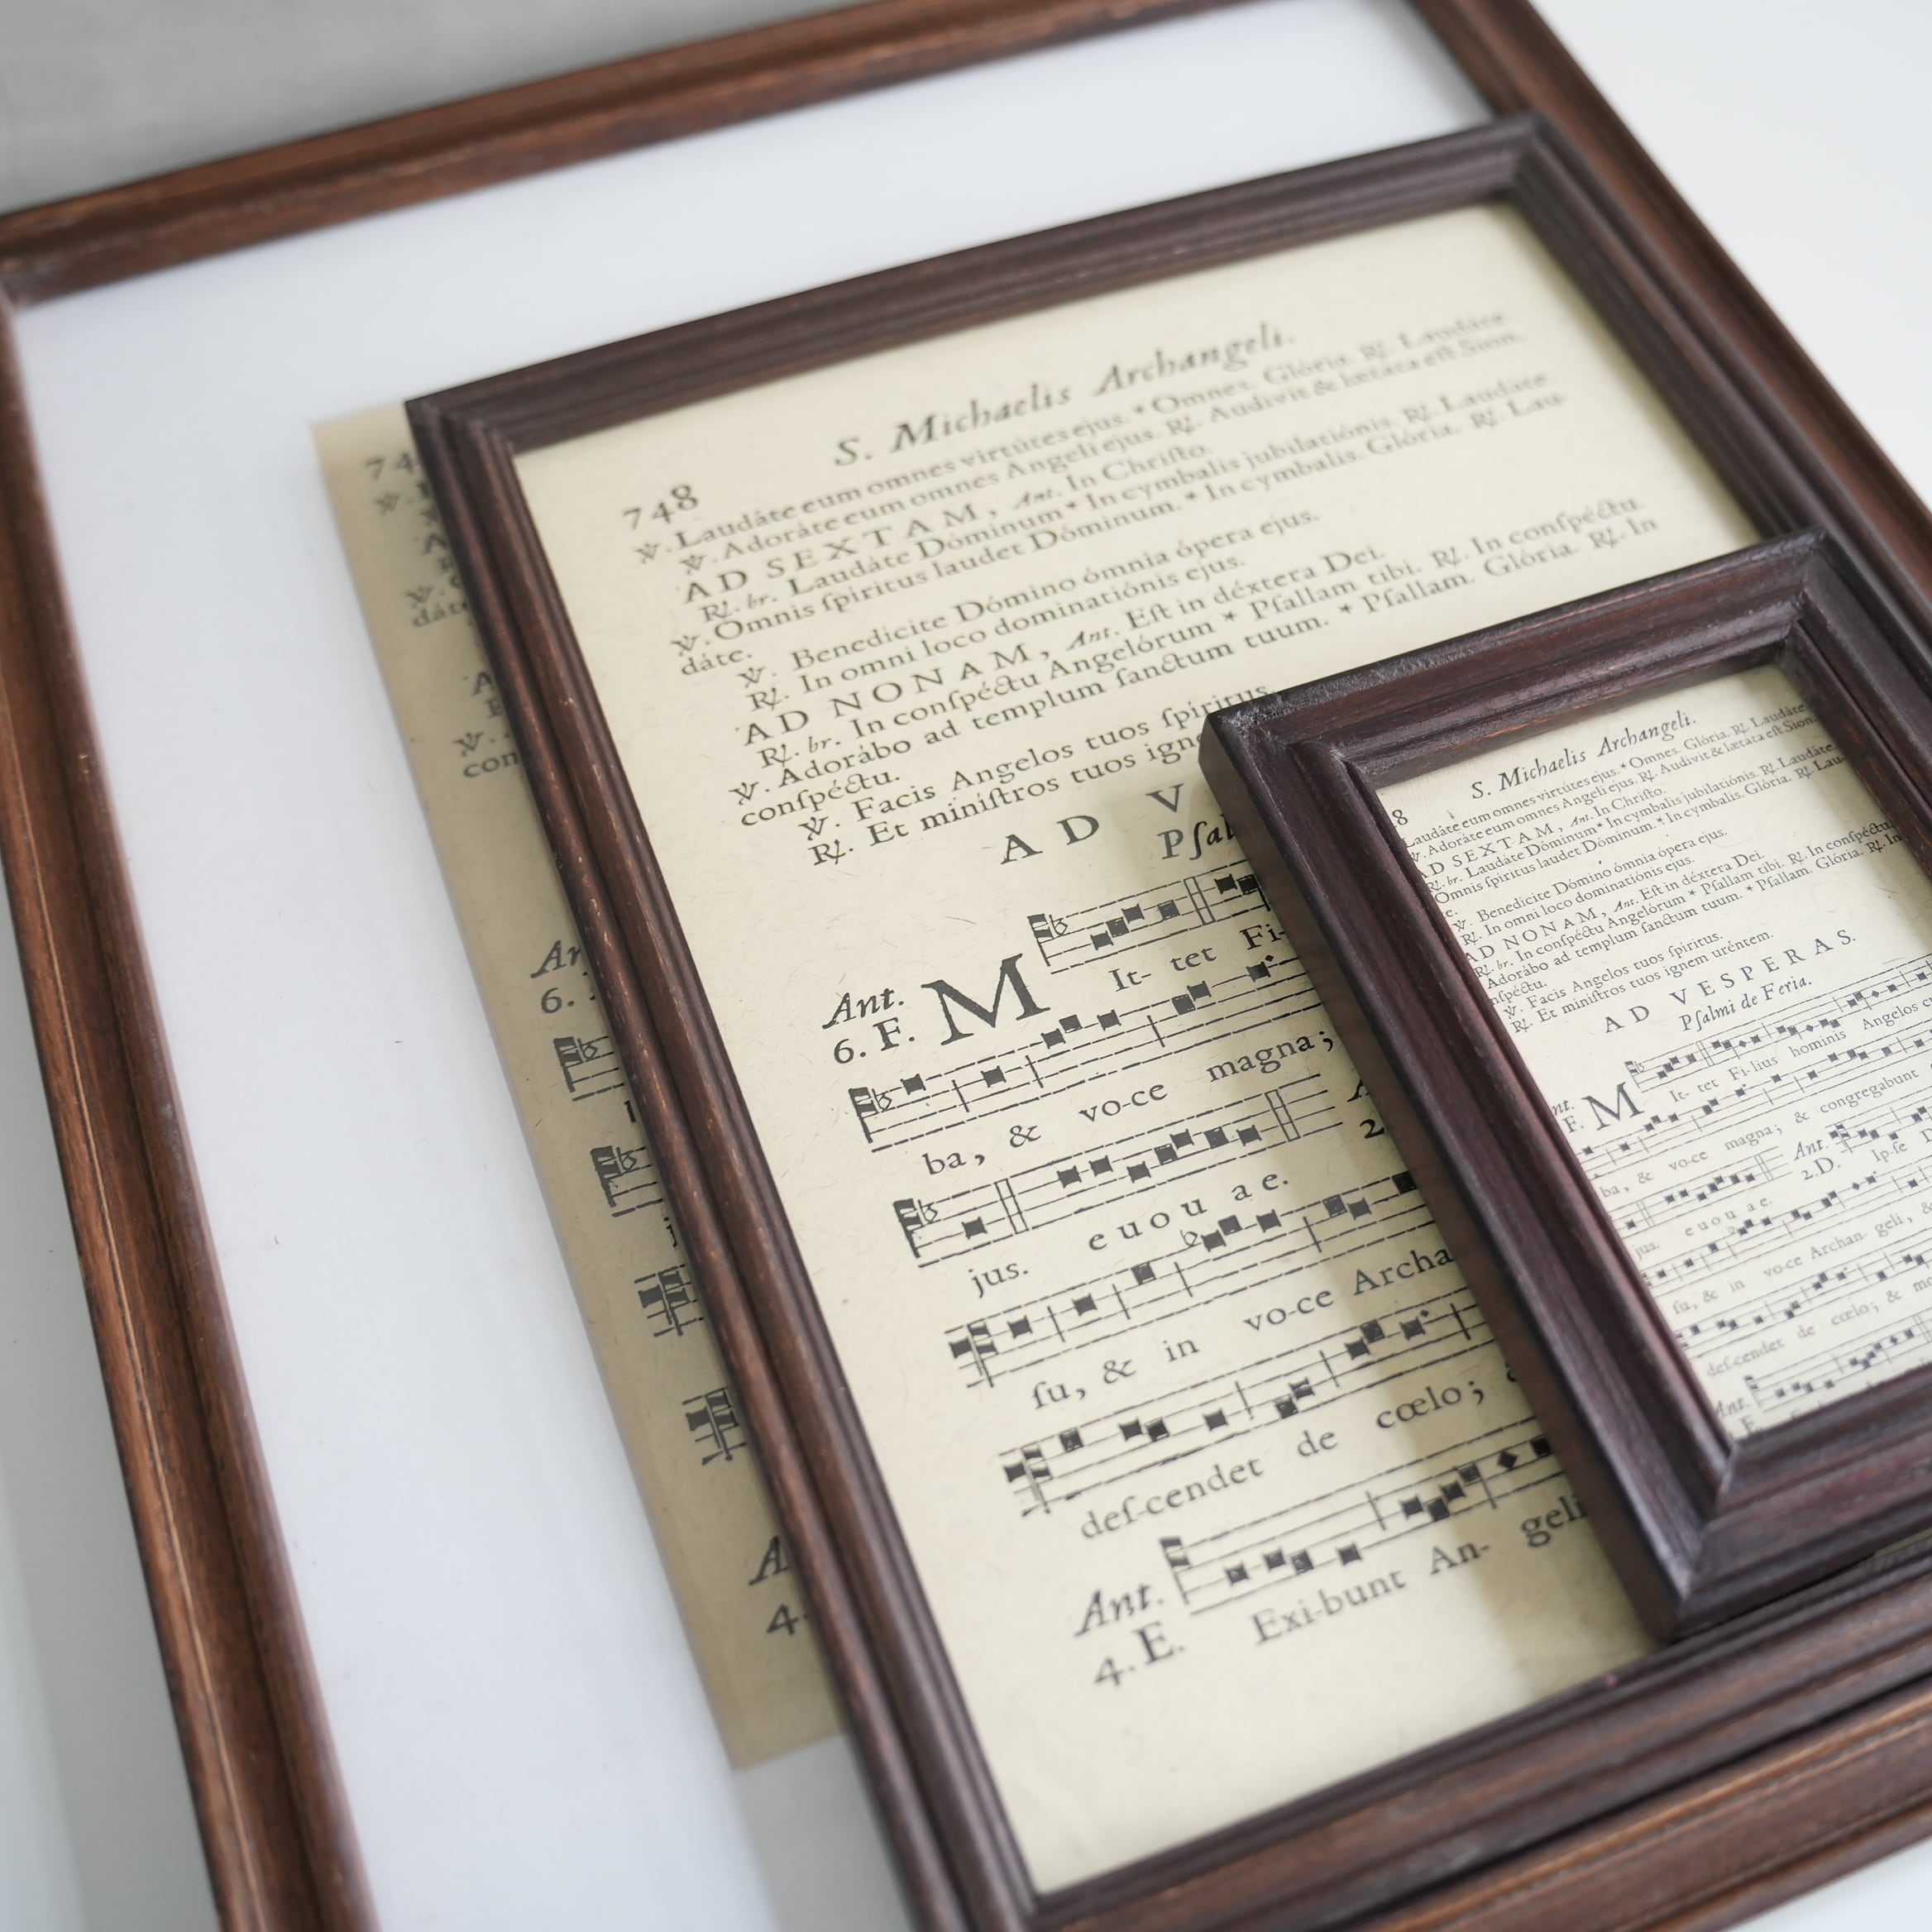 748
S. Michaelis Archangeli.
℣. Laudáte eum omnes virtútes ejus. * Omnes. Glória. ℟. Laudáte
℣. Adoráte eum omnes Angeli ejus. ℟. Audivit & lætáta eſt Sion.
AD SEXTAM, Ant. In Chriſto.
℟. br. Laudáte Dóminum * In cymbalis jubilatiónis. ℟. Laudáte.
℣. Omnis ſpiritus laudet Dóminum. * In cymbalis. Glória. ℟. Lau-
dáte.
℣. Benedicite Dómino ómnia ópera ejus.
℟. In omni loco dominatiónis ejus.
AD NONAM, Ant. Eſt in déxtera Dei.
℟. br. In conſpéctu Angelórum * Pſallam tibi. ℟. In conſpéctu.
℣. Adorábo ad templum ſanctum tuum. * Pſallam. Glória. ℟. In
conſpéctu.
℣. Facis Angelos tuos ſpiritus.
℟. Et miniſtros tuos igne
AD V
Pſal
Ant.
6. F.
M It- tet Fi-
ba, & vo-ce magna;
2
jus. e u o u a e.
ſu, & in vo-ce Archa
deſ-cendet de cœlo;
Ant.
4. E.
Exi-bunt An- geli
74
℣.
dáte
℣.
con
An
6.
4.
8
S. Michaelis Archangeli.
Laudáte eum omnes virtútes ejus. * Omnes. Glória. ℟. Laudáte
℣. Adoráte eum omnes Angeli ejus. ℟. Audivit & lætáta eſt Sion.
AD SEXTAM, Ant. In Chriſto.
℟. br. Laudáte Dóminum * In cymbalis jubilatiónis. ℟. Laudáte
Omnis ſpiritus laudet Dóminum. * In cymbalis. Glória. ℟. Lau-
e.
℣. Benedicite Dómino ómnia ópera ejus.
℟. In omni loco dominatiónis ejus.
AD NONAM, Ant. Eſt in déxtera Dei.
℟. br. In conſpéctu Angelórum * Pſallam tibi. ℟. In conſpéctu
Adorábo ad templum ſanctum tuum. * Pſallam. Glória. ℟. In
nſpéctu.
℣. Facis Angelos tuos ſpiritus.
℟. Et miniſtros tuos ignem uréntem.
AD VESPERAS.
Pſalmi de Feria.
nt.
F.
M It- tet Fi-lius hominis Angelos
ba, & vo-ce magna; & congregabunt
jus. e u o u a e.
Ant.
2. D.
Ip-ſe
ſu, & in vo-ce Archan- geli, &
deſ-cendet de cœlo; & mo
Ant.
E.